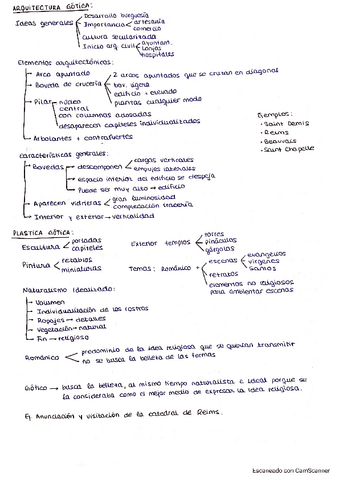 ARQUITECTURA GÓTICA:
Desarrollo burguesía
Ideas generales Importancia artesanía
comercio
Cultura secularizada
Inicio arq. civil ayuntam.
lonjas
hospitales
Elementos arquitectónicos:
Arco apuntado 2 arcos apuntados que se cruzan en diagonal
Boveda de crucería bov. ligera
edificio + elevado
Pilar núcleo plantas cualquier modo
central
con columnas adosadas
desaparecen capiteles individualizados
Arbotantes + contrafuertes
Ejemplos:
- Saint Denis
- Reims
- Beauvais
- Saint Chapelle
Características generales:
Bovedas descomponen cargas verticales
empujes laterales
espacio interior del edificio se despeja
Puede ser muy alto → edificio
Aparecen vidrieras gran luminosidad
complicación tracería
Interior y exterior → verticalidad
PLASTICA GÓTICA:
Escultura portadas Exterior templos torres
capiteles pináculos
gárgolas
Pintura retablos Temas: Románico + escenas evangelios
miniaturas virgenes
santos
retratos
elementos no religiosos
para ambientar escenas
Naturalismo Idealizado:
Volumen
Individualización de los rostros
Ropajes → detalles
Vegetación → natural
Fin → religioso
Románico predominio de la idea religiosa que se querían transmitir
no se busca la belleza de las formas
Gótico → busca la belleza, al mismo tiempo naturalista e ideal porque se
la consideraba como el mejor medio de expresar la idea religiosa.
Ej Anunciación y visitación de la catedral de Reims.
Escaneado con CamScanner